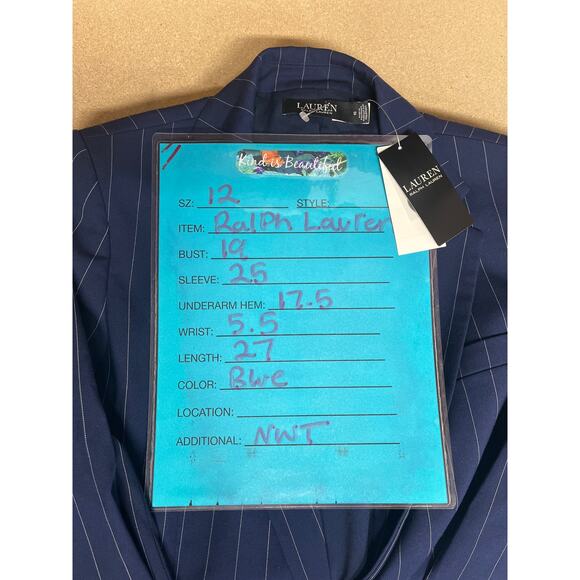 LAUREN
RALPH LAUREN
Kind is Beautiful
LAUREN
RALPH LAUREN
SZ: 12 STYLE:
ITEM: Ralph Lauren
BUST: 19
SLEEVE: 25
UNDERARM HEM: 17.5
WRIST: 5.5
LENGTH: 27
COLOR: Blue
LOCATION:
ADDITIONAL: NWT